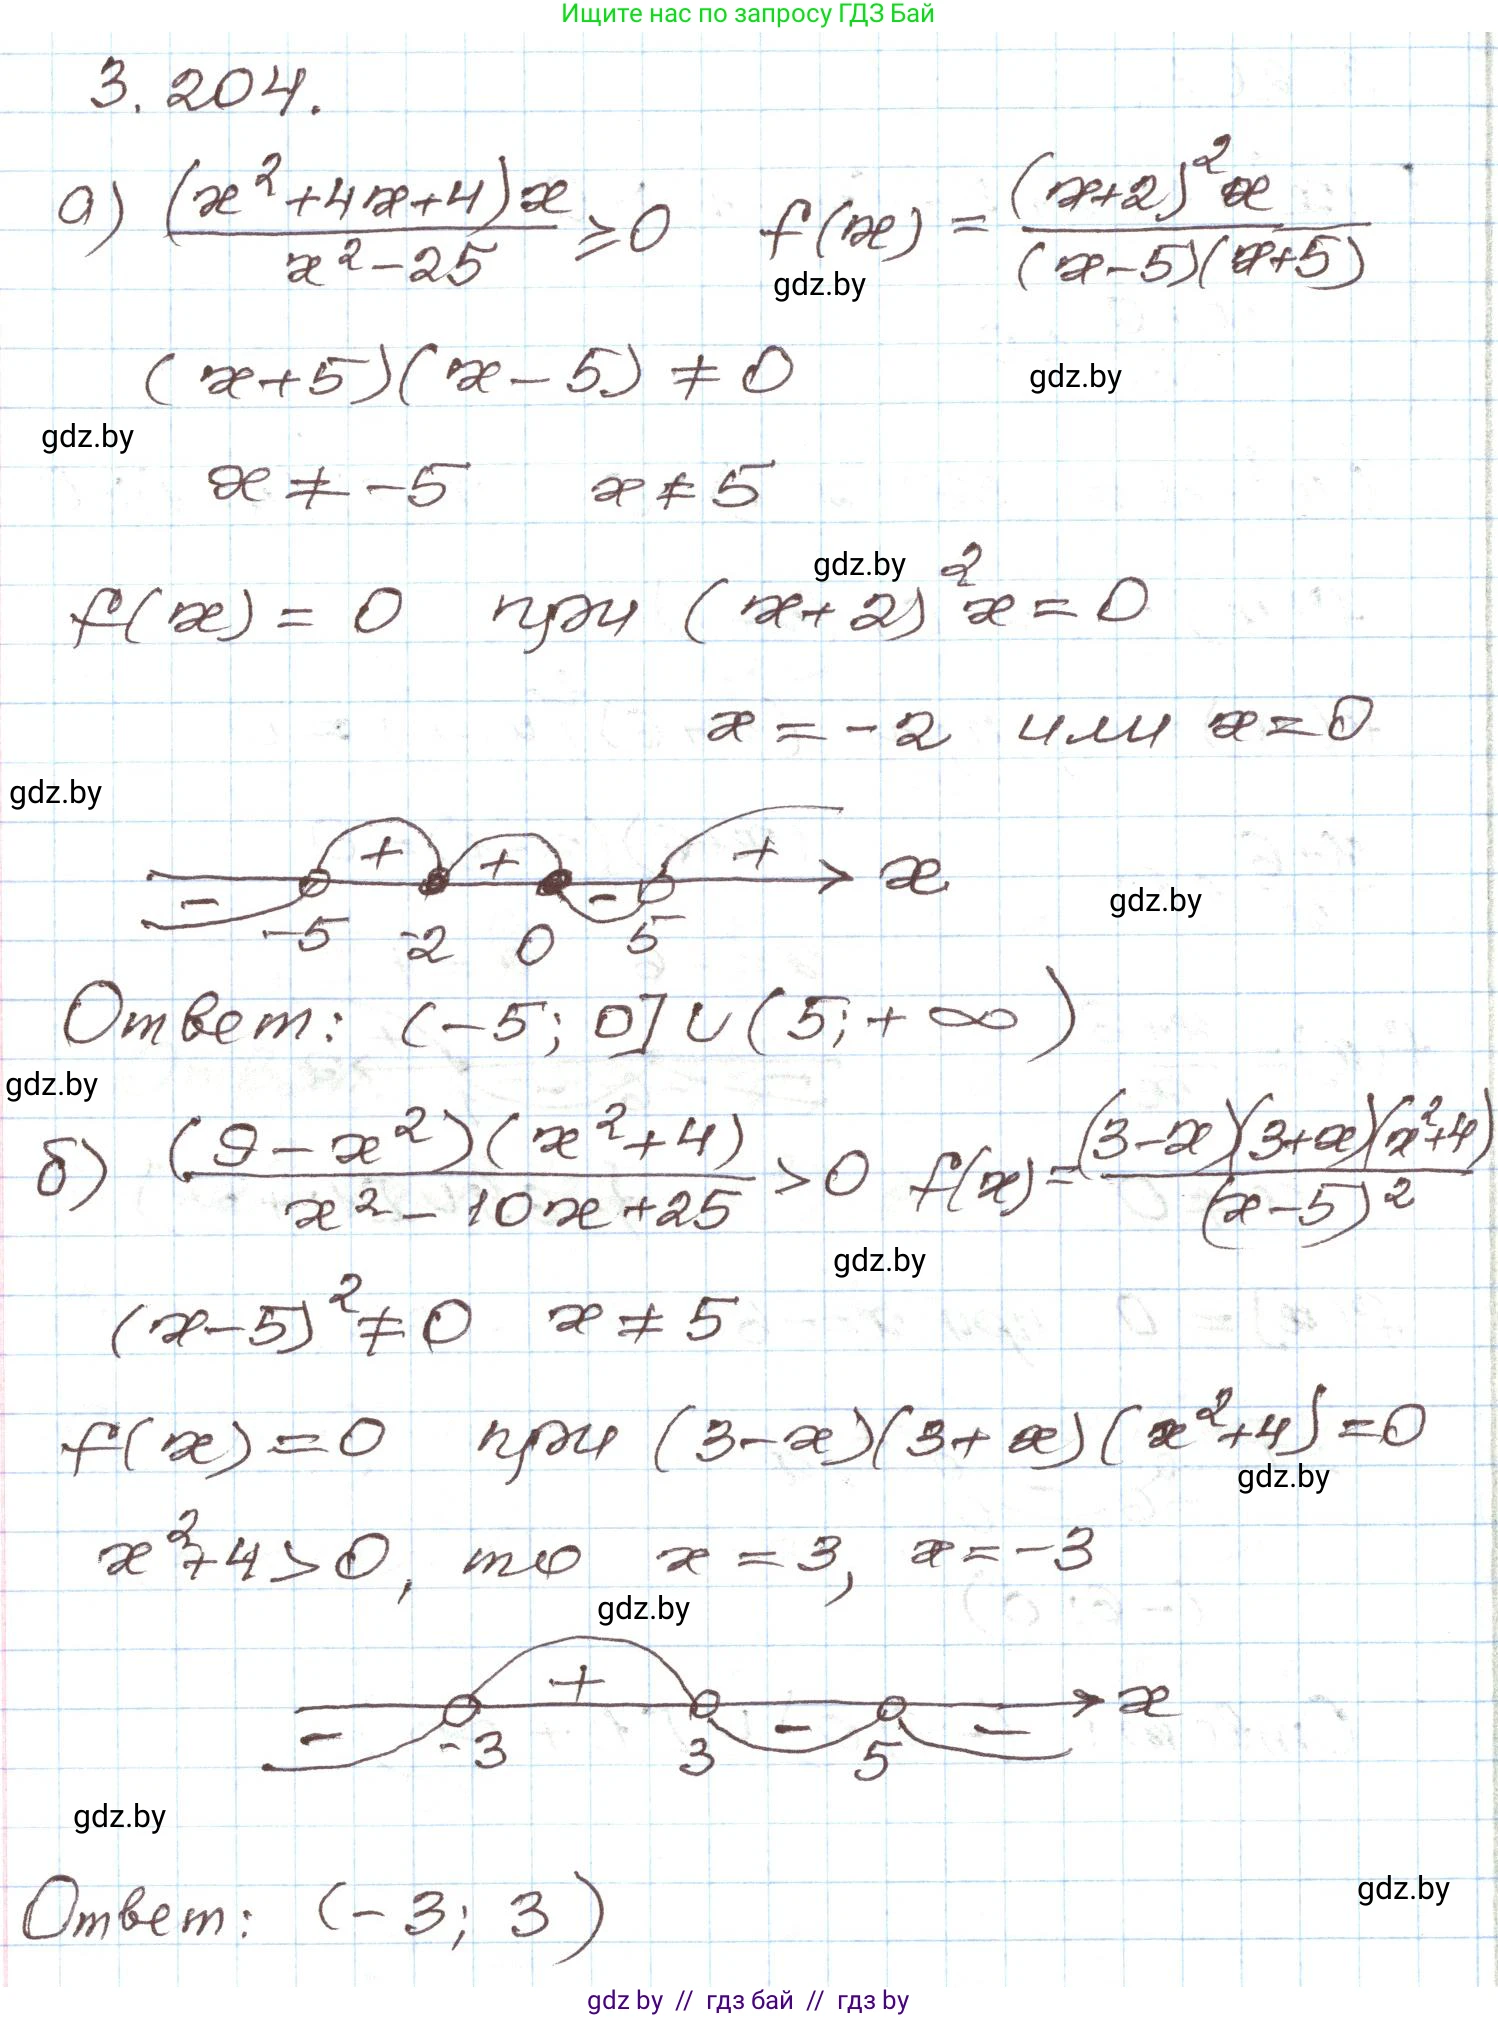 Ищите нас по запросу ГДЗ Бай
3.204.
а) (x²+4x+4)x / x²-25 ≥0 f(x) = (x+2)²x / (x-5)(x+5)
gdz.by
(x+5)(x-5) ≠ 0
gdz.by
gdz.by
x ≠ -5 x ≠ 5
gdz.by
f(x) = 0 при (x+2)²x=0
x = -2 или x=0
gdz.by
- + + - + x
gdz.by
-5 -2 0 5
Ответ: (-5; 0] ∪ (5; +∞)
gdz.by
б) (9-x²)(x²+4) / x²-10x+25 >0 f(x)= (3-x)(3+x)(x²+4) / (x-5)²
gdz.by
(x-5)²≠0 x ≠ 5
f(x)=0 при (3-x)(3+x)(x²+4)=0
gdz.by
x²+4>0, то x = 3, x=-3
gdz.by
- + - - x
-3 3 5
gdz.by
gdz.by
Ответ: (-3; 3)
gdz by // гдз бай // гдз by